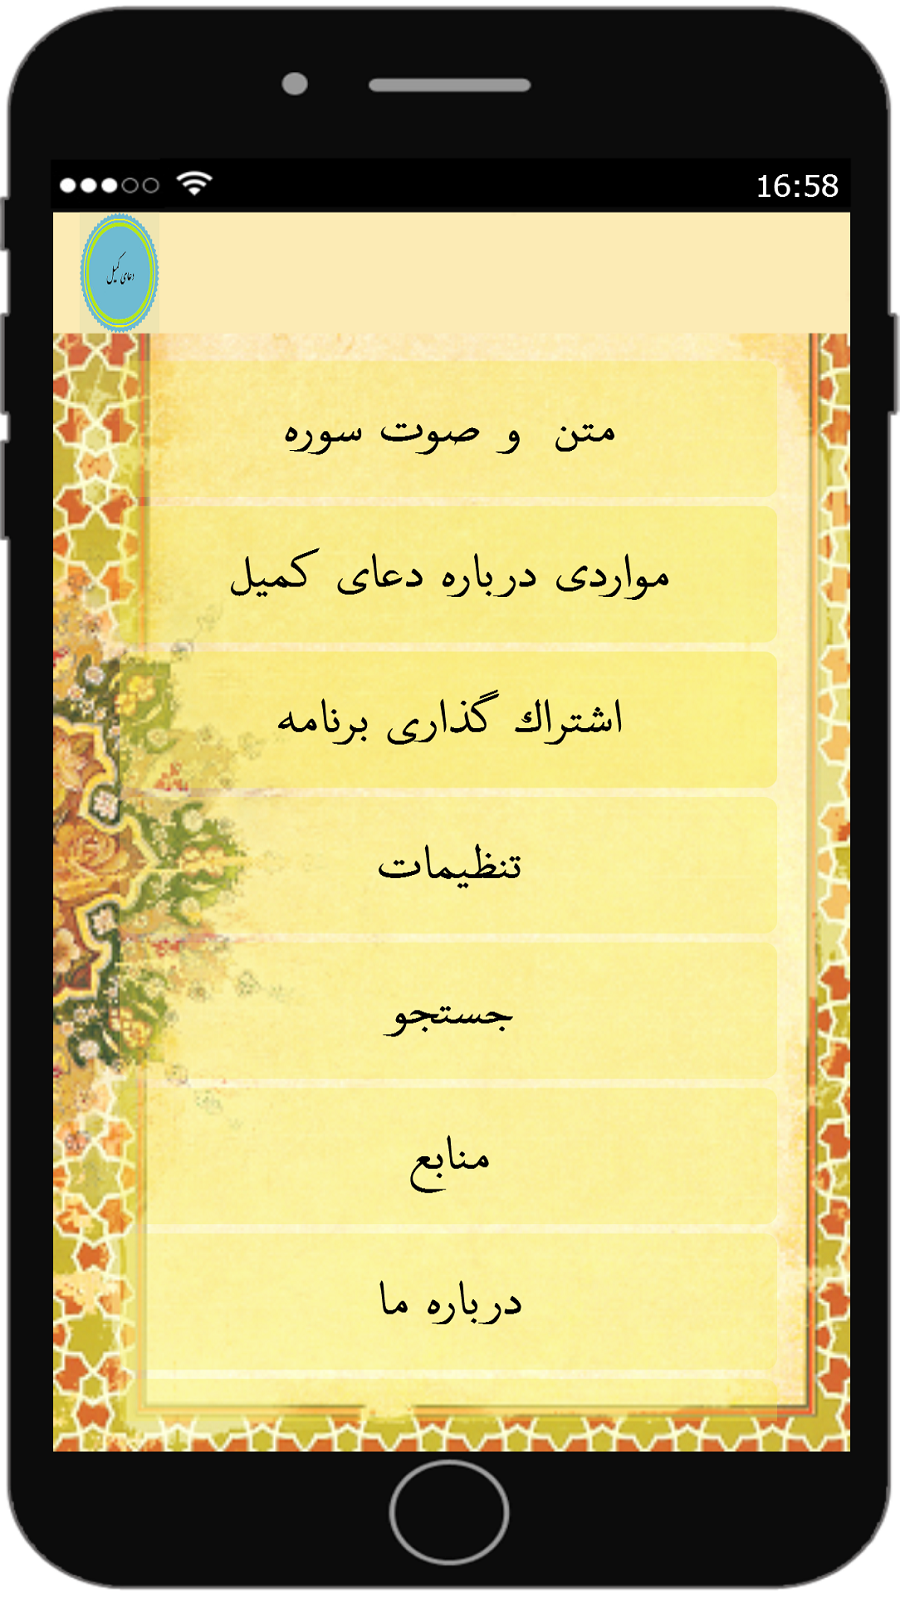 16:58
دعای کمیل
متن و صوت سوره
مواردی درباره دعای کمیل
اشتراك گذاری برنامه
تنظیمات
جستجو
منابع
درباره ما